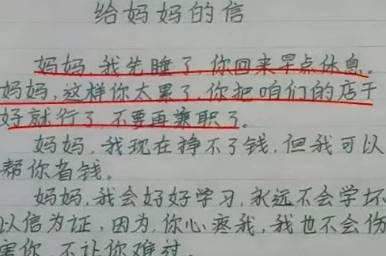 给妈妈的信
妈妈,我先睡了,你回来早点休息。
妈妈,这样你太累了,你把咱们的店干
好就行了,不要再兼职了。
妈妈,我现在挣不了钱,但我可以
帮你省钱。
妈妈,我会好好学习,永远不会学坏
以信为证,因为,你心疼我,我也不会伤
害你,不让你难过